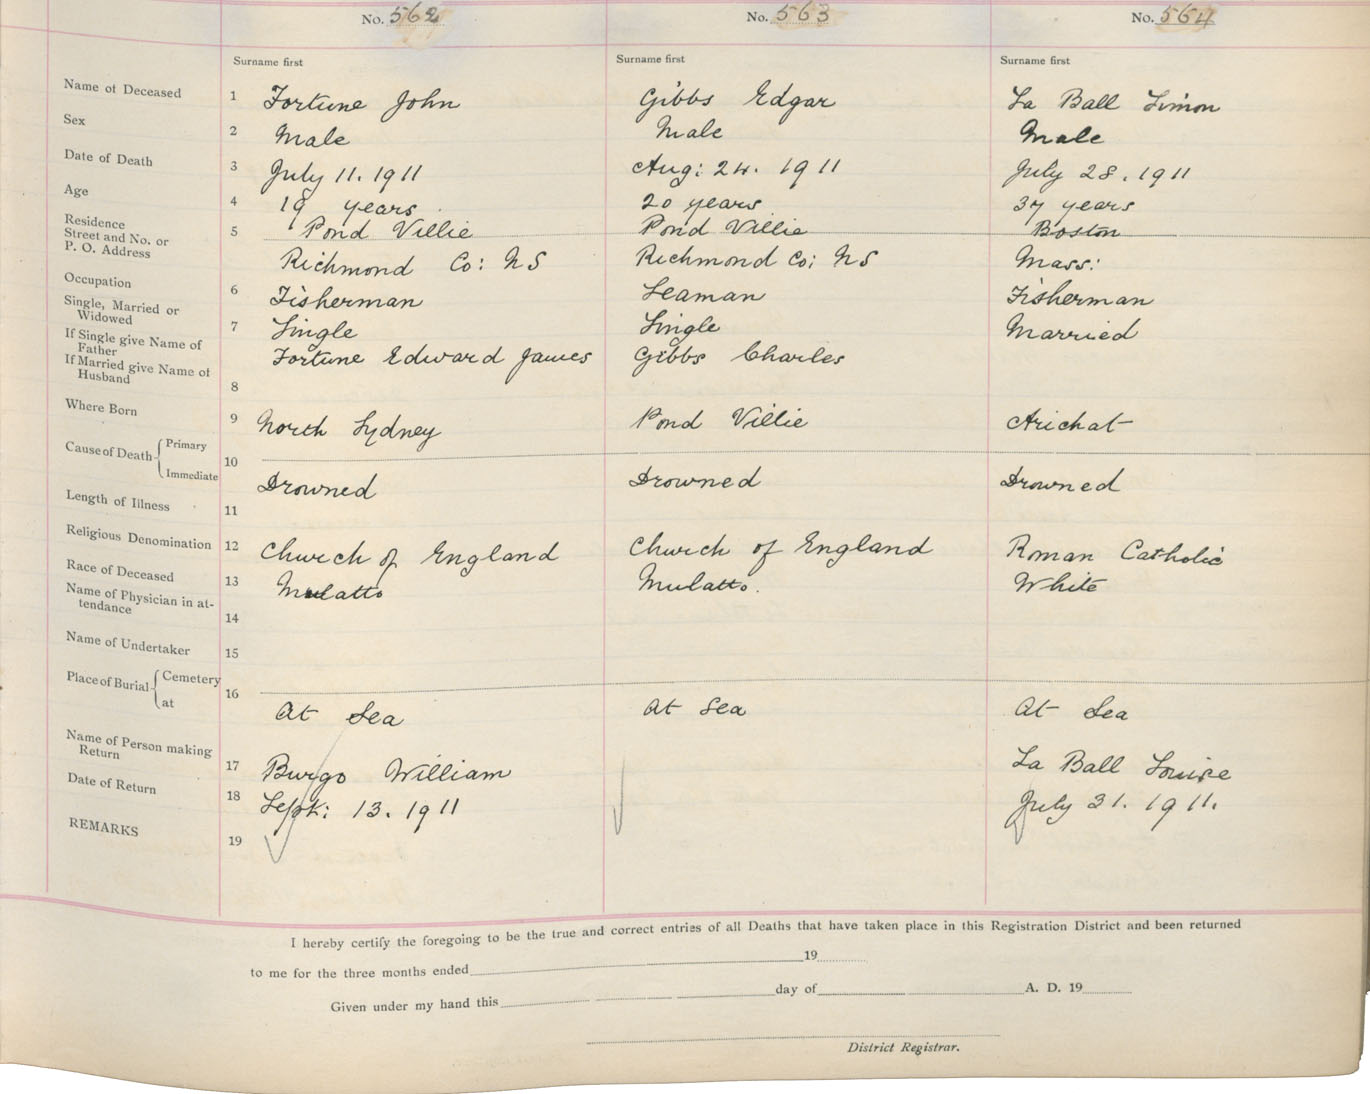 No. 562 No. 563 No. 564
Surname first Surname first Surname first
Name of Deceased 1 Fortune John Gibbs Edgar La Ball Simon
Sex 2 Male Male Male
Date of Death 3 July 11. 1911 Aug: 24. 1911 July 28. 1911
Age 4 19 years 20 years 37 years
Residence
Street and No. or 5 Pond Villie Pond Villie Boston
P. O. Address Richmond Co: NS Richmond Co: NS Mass:
Occupation 6 Fisherman Seaman Fisherman
Single, Married or
Widowed 7 Single Single Married
If Single give Name of
Father Fortune Edward James Gibbs Charles
If Married give Name of
Husband 8
Where Born 9 North Sydney Pond Villie Arichat
Cause of Death Primary 10
Immediate Drowned Drowned Drowned
Length of Illness 11
Religious Denomination 12 Church of England Church of England Roman Catholic
Race of Deceased 13 Mulatto Mulatto. White
Name of Physician in at-
tendance 14
Name of Undertaker 15
Place of Burial Cemetery 16
at At Sea At Sea At Sea
Name of Person making
Return 17 Burgo William La Ball Louise
Date of Return 18 Sept: 13. 1911 July 31. 1911.
REMARKS 19
I hereby certify the foregoing to be the true and correct entries of all Deaths that have taken place in this Registration District and been returned
to me for the three months ended 19
Given under my hand this day of A. D. 19
District Registrar.